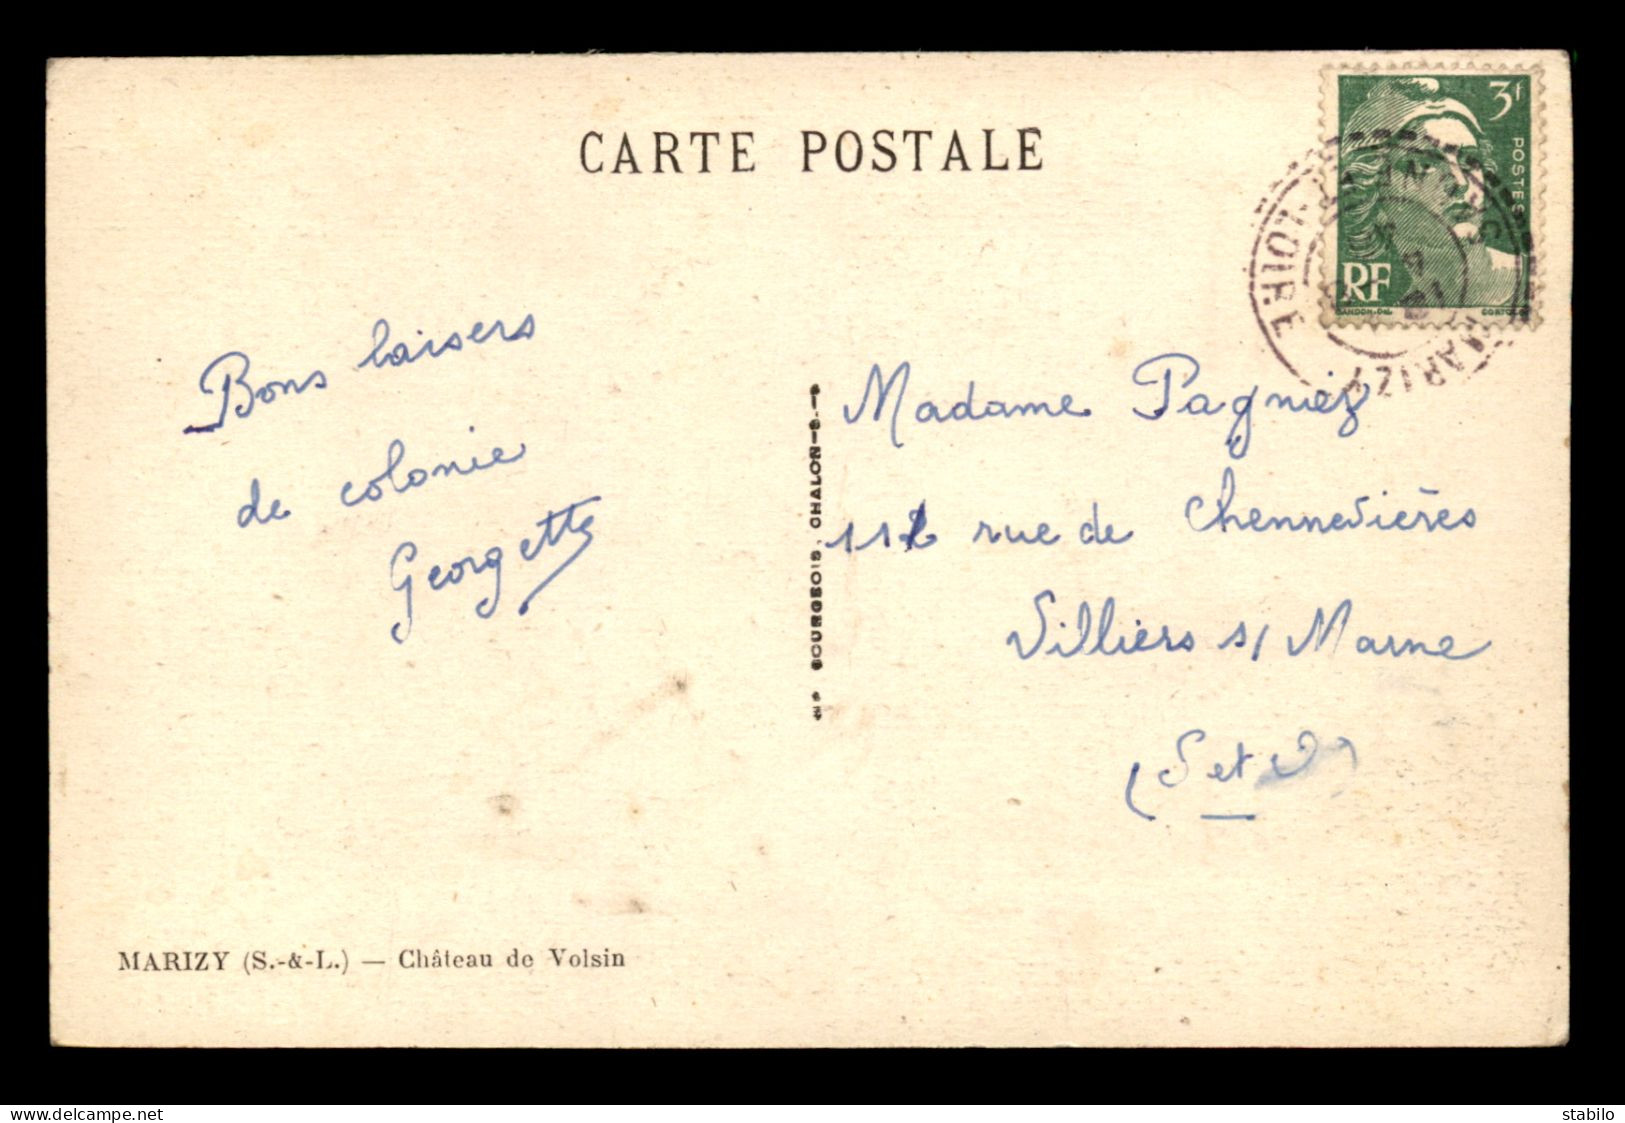 CARTE POSTALE
3f
POSTES
RF
GANDON-DEL
MARIZY
Bons baisers
de colonie
Georgette
Madame Pagniez
112 rue de Chennevières
Villiers s/ Marne
(S et O)
BOURGEOIS. CHALON-S-S
MARIZY (S.-&-L.) — Château de Volsin
delcampe.net
stabilo